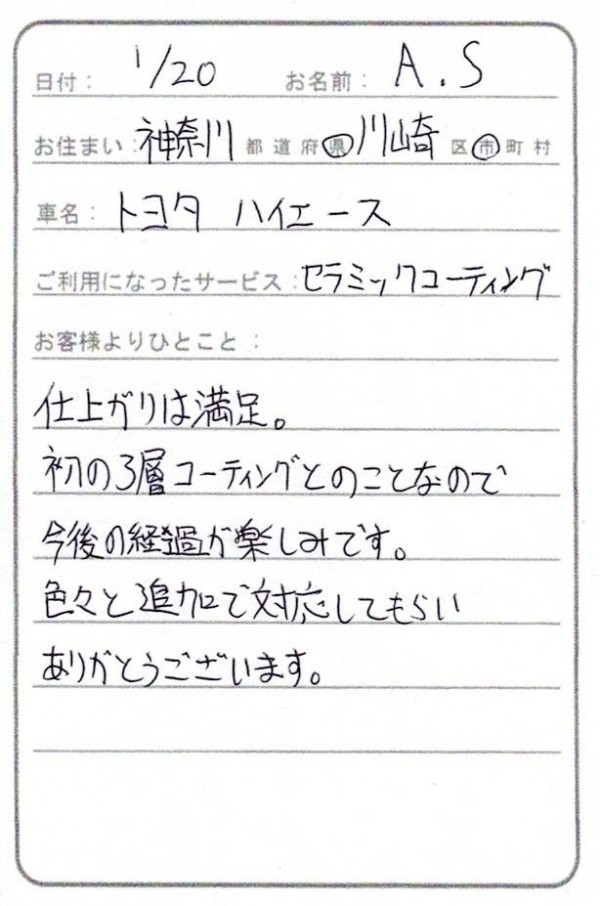 日付： 1/20 お名前： A.S
お住まい：神奈川 都道府県 川崎 区市町村
車名：トヨタ ハイエース
ご利用になったサービス：セラミックコーティング
お客様よりひとこと：
仕上がりは満足。
初の3層コーティングとのことなので
今後の経過が楽しみです。
色々と追加で対応してもらい
ありがとうございます。